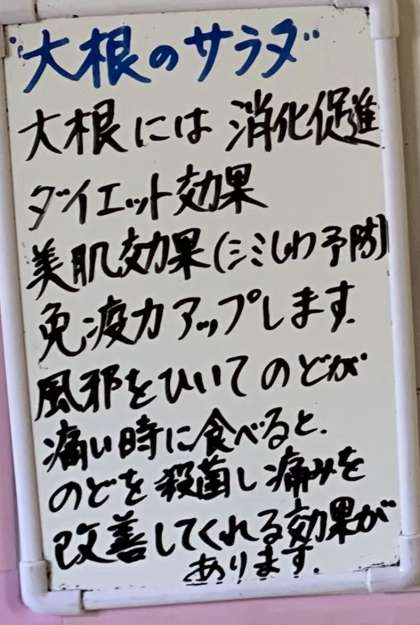 大根のサラダ
大根には消化促進
ダイエット効果
美肌効果(シミしわ予防)
免疫力アップします.
風邪をひいてのどが
痛い時に食べると.
のどを殺菌し痛みを
改善してくれる効果が
あります.